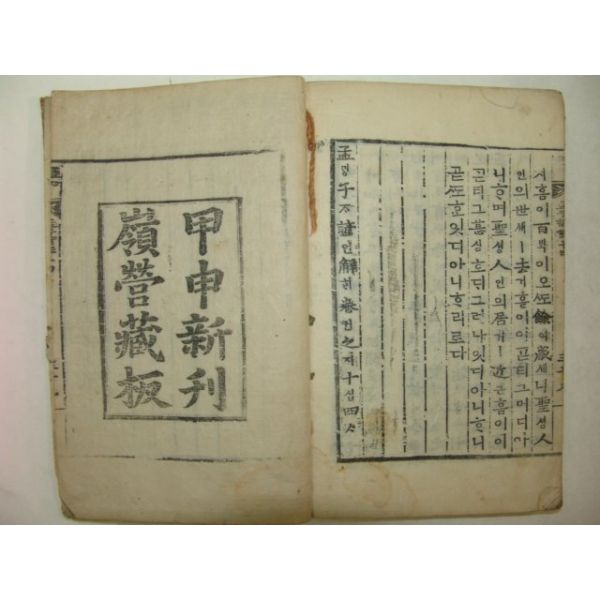 서흠이百ᄇᆡᆨ이오ᄯᅩ餘여歲셰니聖셩人
인의世셰ㅣ去거흠이이ᄀᆞᆮ티그머디아
니ᄒᆞ며聖셩人인의居거ㅣ近근흠이이
ᄀᆞᆮ티그甚심호ᄃᆡ그러나잇디아니ᄒᆞ니
곧ᄯᅩ호잇디아니ᄒᆞ리로다
孟ᄆᆡᆼ子ᄌᆞ諺언解ᄒᆡ卷권之지十십四ᄉᆞ
甲申新刊
嶺營藏板